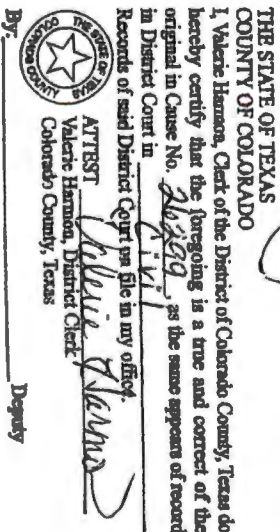 THE STATE OF TEXAS
COUNTY OF COLORADO
I, Valerie Harmon, Clerk of the District of Colorado County, Texas do
hereby certify that the foregoing is a true and correct of the
original in Cause No. 26,299, as the same appears of record
in District Court in Civil
Records of said District Court on file in my office.
ATTEST Valerie Harmon
Valerie Harmon, District Clerk
Colorado County, Texas
By: Deputy
THE STATE OF TEXAS
COLORADO COUNTY